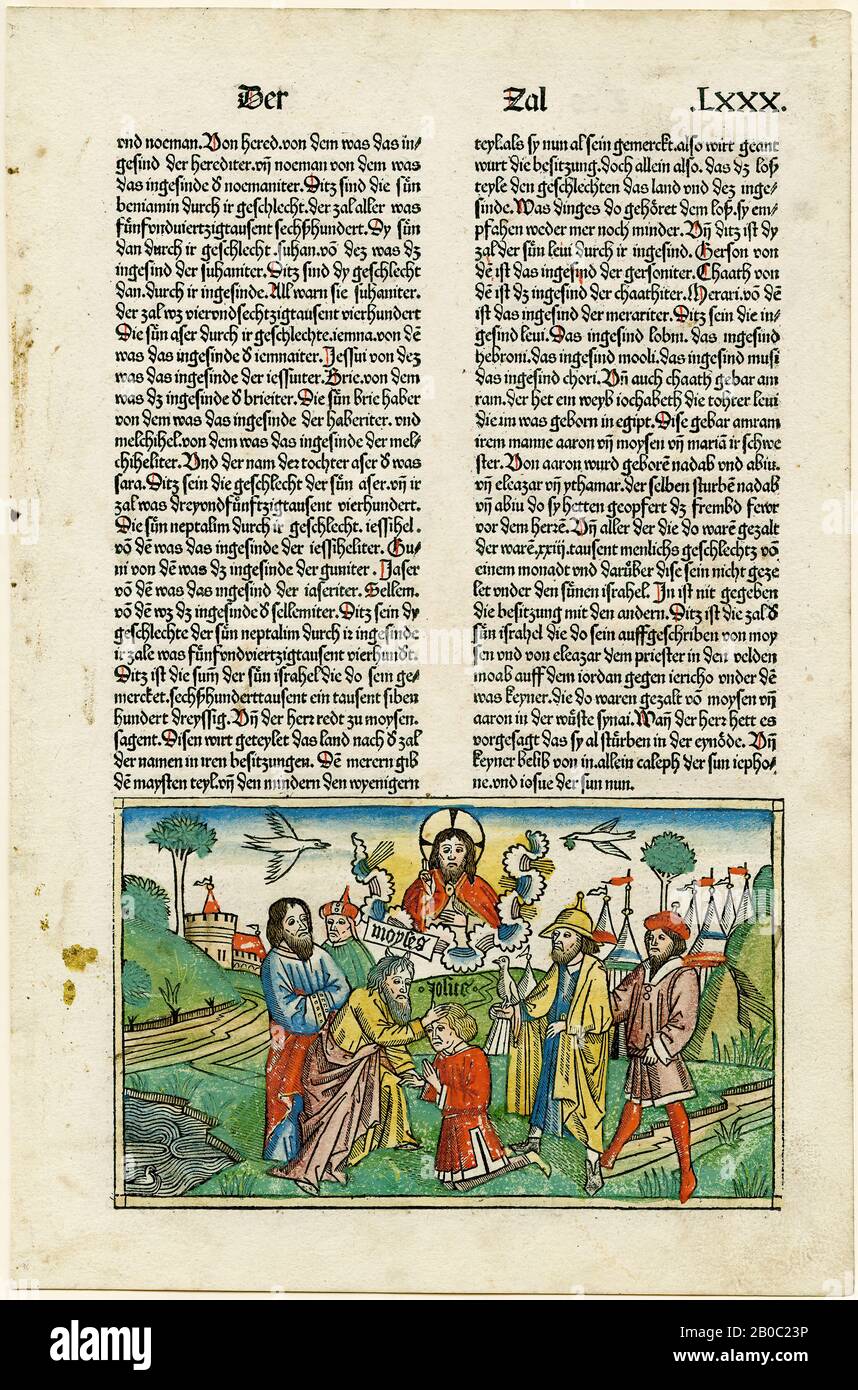 Der Zal .LXXX.
vnd noeman. Von hered. von dem was das in⸗
gesind der herediter. vñ noeman von dem was
das ingesinde d̕ noemaniter. Ditz sind die sün
beniamin durch ir geschlecht. der zal aller was
fünfvndviertzigtausent sechßhundert. Dy sün
dan durch ir geschlecht. suhan. võ dez was dz
ingesind der suhaniter. Ditz sind dy geschlecht
dan. durch ir ingesinde. All warn sie suhaniter.
der zal wz viervndsechtzigtausent vierhundert
Die sün aser durch ir geschlechte. iemna. von dē
was das ingesinde d̕ iemnaiter. Jessui von dez
was das ingesinde der iessuiter. Brie. von dem
was dz ingesinde d̕ brieiter. Die sün brie haber
von dem was das ingesinde der haberiter. vnd
melchihel. von dem was das ingesinde der mel⸗
chiheliter. Vnd der nam der tochter aser d̕ was
sara. Ditz sein die geschlecht der sün aser. vñ ir
zal was dreyvndfünftzigtausent vierhundert.
Die sün neptalim durch ir geschlecht. iessihel.
võ dē was das ingesinde der iessiheliter. Gu⸗
ni von dē was dz ingesinde der guniter. Jaser
võ dē was das ingesind der iaseriter. Sellem.
von dē wz dz ingesinde d̕ sellemiter. Ditz sein dy
geschlechte der sün neptalim durch ir ingesinde
ir zale was fünfvndviertzigtausent vierhundt.
Ditz ist die sum̄ der sün israhel die do sein ge⸗
mercket. sechßhunderttausent ein tausent siben
hundert dreyssig. Vñ der herr redt zu moysen.
sagent. Disen wirt geteylet das land nach d̕ zal
der namen in iren besitzungen. Dē merern gib
den maysten teyl. vñ den mindern den wyenigern
teyl. als sy nun al sein gemerckt. also wirt geant
wurt die besitzung. doch allein also. das dz loß
teyle den geschlechten das land vnd dez inge⸗
sinde. Was dinges do gehöret dem loß. sy em⸗
pfahen weder mer noch minder. Vñ ditz ist dy
zal der sün leui durch ir ingesind. Gerson von
dē ist das ingesind der gersoniter. Chaath von
dē ist dz ingesind der chaathiter. Merari. võ dē
ist das ingesind der merariter. Ditz sein die in⸗
gesind leui. Das ingesind lobni. das ingesind
hebroni. das ingesind mooli. das ingesind musi
das ingesind chori. Vñ auch chaath gebar am
ram. der het ein weyb iochabeth die tohter leui
die im was geborn in egipt. Dise gebar amram
irem manne aaron vñ moysen vñ mariā ir schwe
ster. Von aaron wurd geborē nadab vnd abiu.
vñ eleazar vñ ythamar. der selben sturbē nadab
vñ abiu do sy hetten geopfert dz frembd fewr
vor dem herrē. Vñ aller der die do warē gezalt
der warē. xxiij. tausent menlichs geschlechtz võ
einem monadt vnd darüber dise sein nicht geze
let vnder den sünen israhel. In ist nit gegeben
die besitzung mit den andern. Ditz ist die zal d̕
sün israhel die do sein auffgeschriben von moy
sen vnd von eleazar dem priester in den velden
moab auff dem iordan gegen iericho vnder dē
was keyner. die do waren gezalt võ moysen vñ
aaron in der wüste synai. Wan̄ der herr hett es
vorgesagt das sy al stürben in der eynöde. Vñ
keyner belib von in. allein caleph der sun iepho⸗
ne. vnd iosue der sun nun.
moyses
alamy
alamy
Image ID: 2B0C23P
www.alamy.com